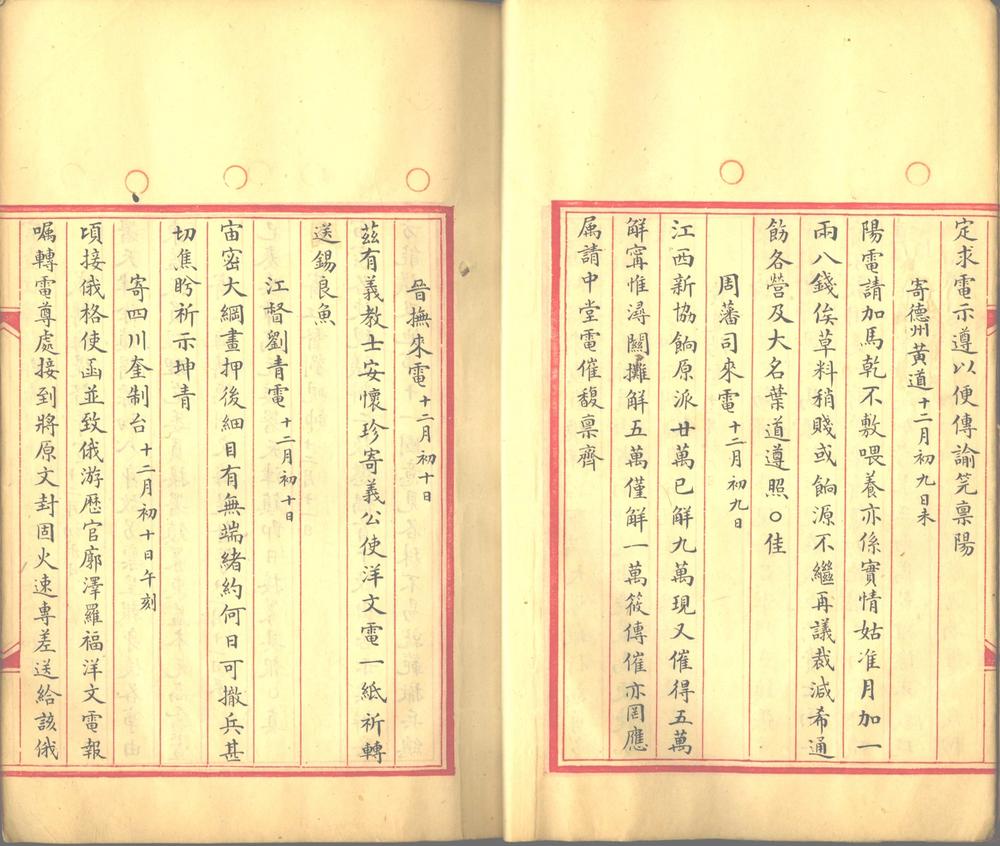 定求電示遵以便傳諭筦禀陽
寄德州黃道十二月初九日未
陽電請加馬乾不敷喂養亦係實情姑准月加一
兩八錢俟草料稍賤或餉源不繼再議裁減希通
飭各營及大名葉道遵照○佳
周藩司來電十二月初九日
江西新協餉原派廿萬已解九萬現又催得五萬
解甯惟潯關攤解五萬僅解一萬筱傳催亦罔應
属請中堂電催馥禀齊
晉撫來電十二月初十日
茲有義教士安懷珍寄義公使洋文電一紙祈轉
送錫良魚
江督劉青電十二月初十日
宙密大綱畫押後細目有無端緒約何日可撤兵甚
切焦盼祈示坤青
寄四川奎制台十二月初十日午刻
頃接俄格使函並致俄游歷官廓澤羅福洋文電報
囑轉電尊處接到將原文封固火速專差送給該俄